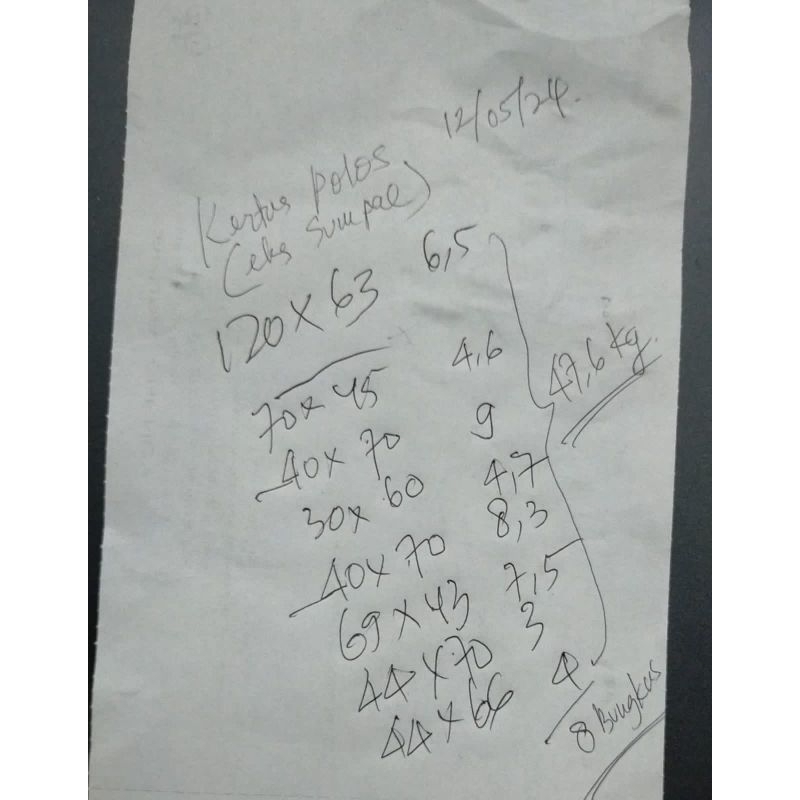 12/05/24.
Kertas polos
(eks sumpal)
120 x 63 6,5
70 x 45 4,6
40 x 70 9
30 x 60 4,7
40 x 70 8,3
69 x 43 7,5
44 x 70 3
44 x 66 4
47,6 kg.
8 Bungkus